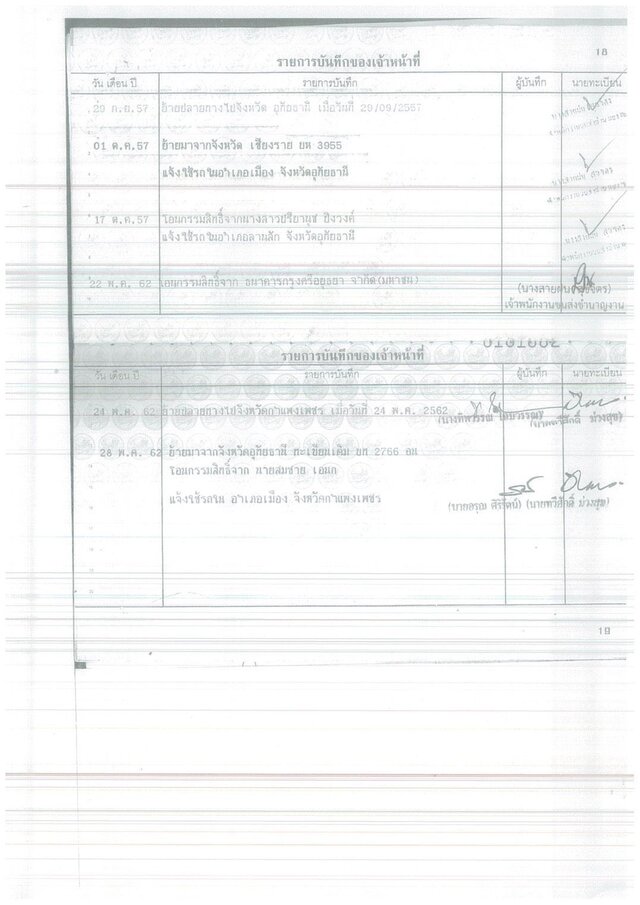 18
รายการบันทึกของเจ้าหน้าที่
วัน เดือน ปี รายการบันทึก ผู้บันทึก นายทะเบียน
29 ก.ย.57 ย้ายปลายทางไปจังหวัด อุทัยธานี เมื่อวันที่ 29/09/2557
01 ต.ค.57 ย้ายมาจากจังหวัด เชียงราย ยห 3955
แจ้งใช้รถในอำเภอเมือง จังหวัดอุทัยธานี
17 ต.ค.57 โอนกรรมสิทธิ์จากนางสาวปรียานุช
แจ้งใช้รถในอำเภอลานสัก จังหวัดอุทัยธานี
22 พ.ค. 62 โอนกรรมสิทธิ์จาก ธนาคารกรุงศรีอยุธยา จำกัด(มหาชน)
เจ้าพนักงานขนส่งชำนาญงาน
รายการบันทึกของเจ้าหน้าที่
วัน เดือน ปี รายการบันทึก ผู้บันทึก นายทะเบียน
24 พ.ค. 62 ย้ายปลายทางไปจังหวัดกำแพงเพชร เมื่อวันที่ 24 พ.ค. 2562
ม่วงสุข)
28 พ.ค. 62 ย้ายมาจากจังหวัดอุทัยธานี ทะเบียนเดิม ยท 2766 อน
โอนกรรมสิทธิ์จาก นายสมชาย เอมก
แจ้งใช้รถใน อำเภอเมือง จังหวัดกำแพงเพชร
(นายอรุณ ศิริรัตน์) (นายทวีศักดิ์ ม่วงสุข)
19